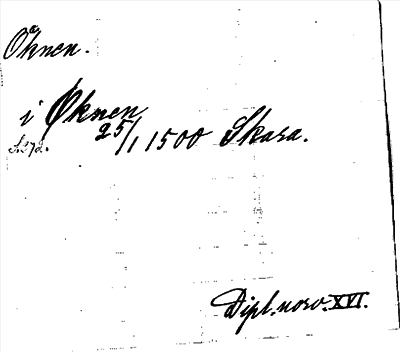 Öknen.
i Øknen
25/1 1500 Skara.
S. 372.
Dipl. norv. XVI.